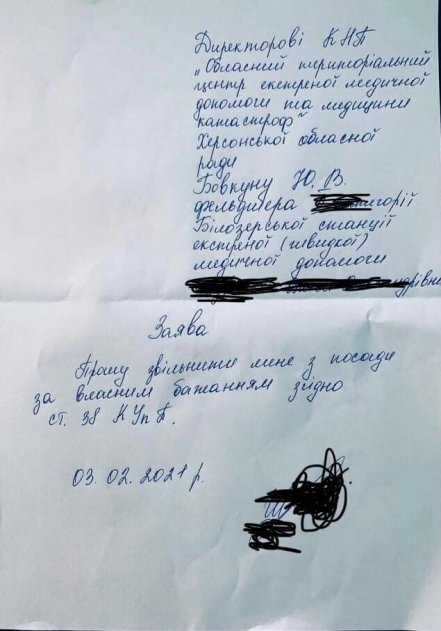 Директорові КНП
„Обласний територіальний
центр екстреної медичної
допомоги та медицини
катастроф"
Херсонської обласної
ради
Бовкуну Ю. В.
фельдшера категорії
Білозерської станції
екстреної (швидкої)
медичної допомоги
Заява
Прошу звільнити мене з посади
за власним бажанням згідно
ст. 38 КУпП.
03. 02. 2021 р.